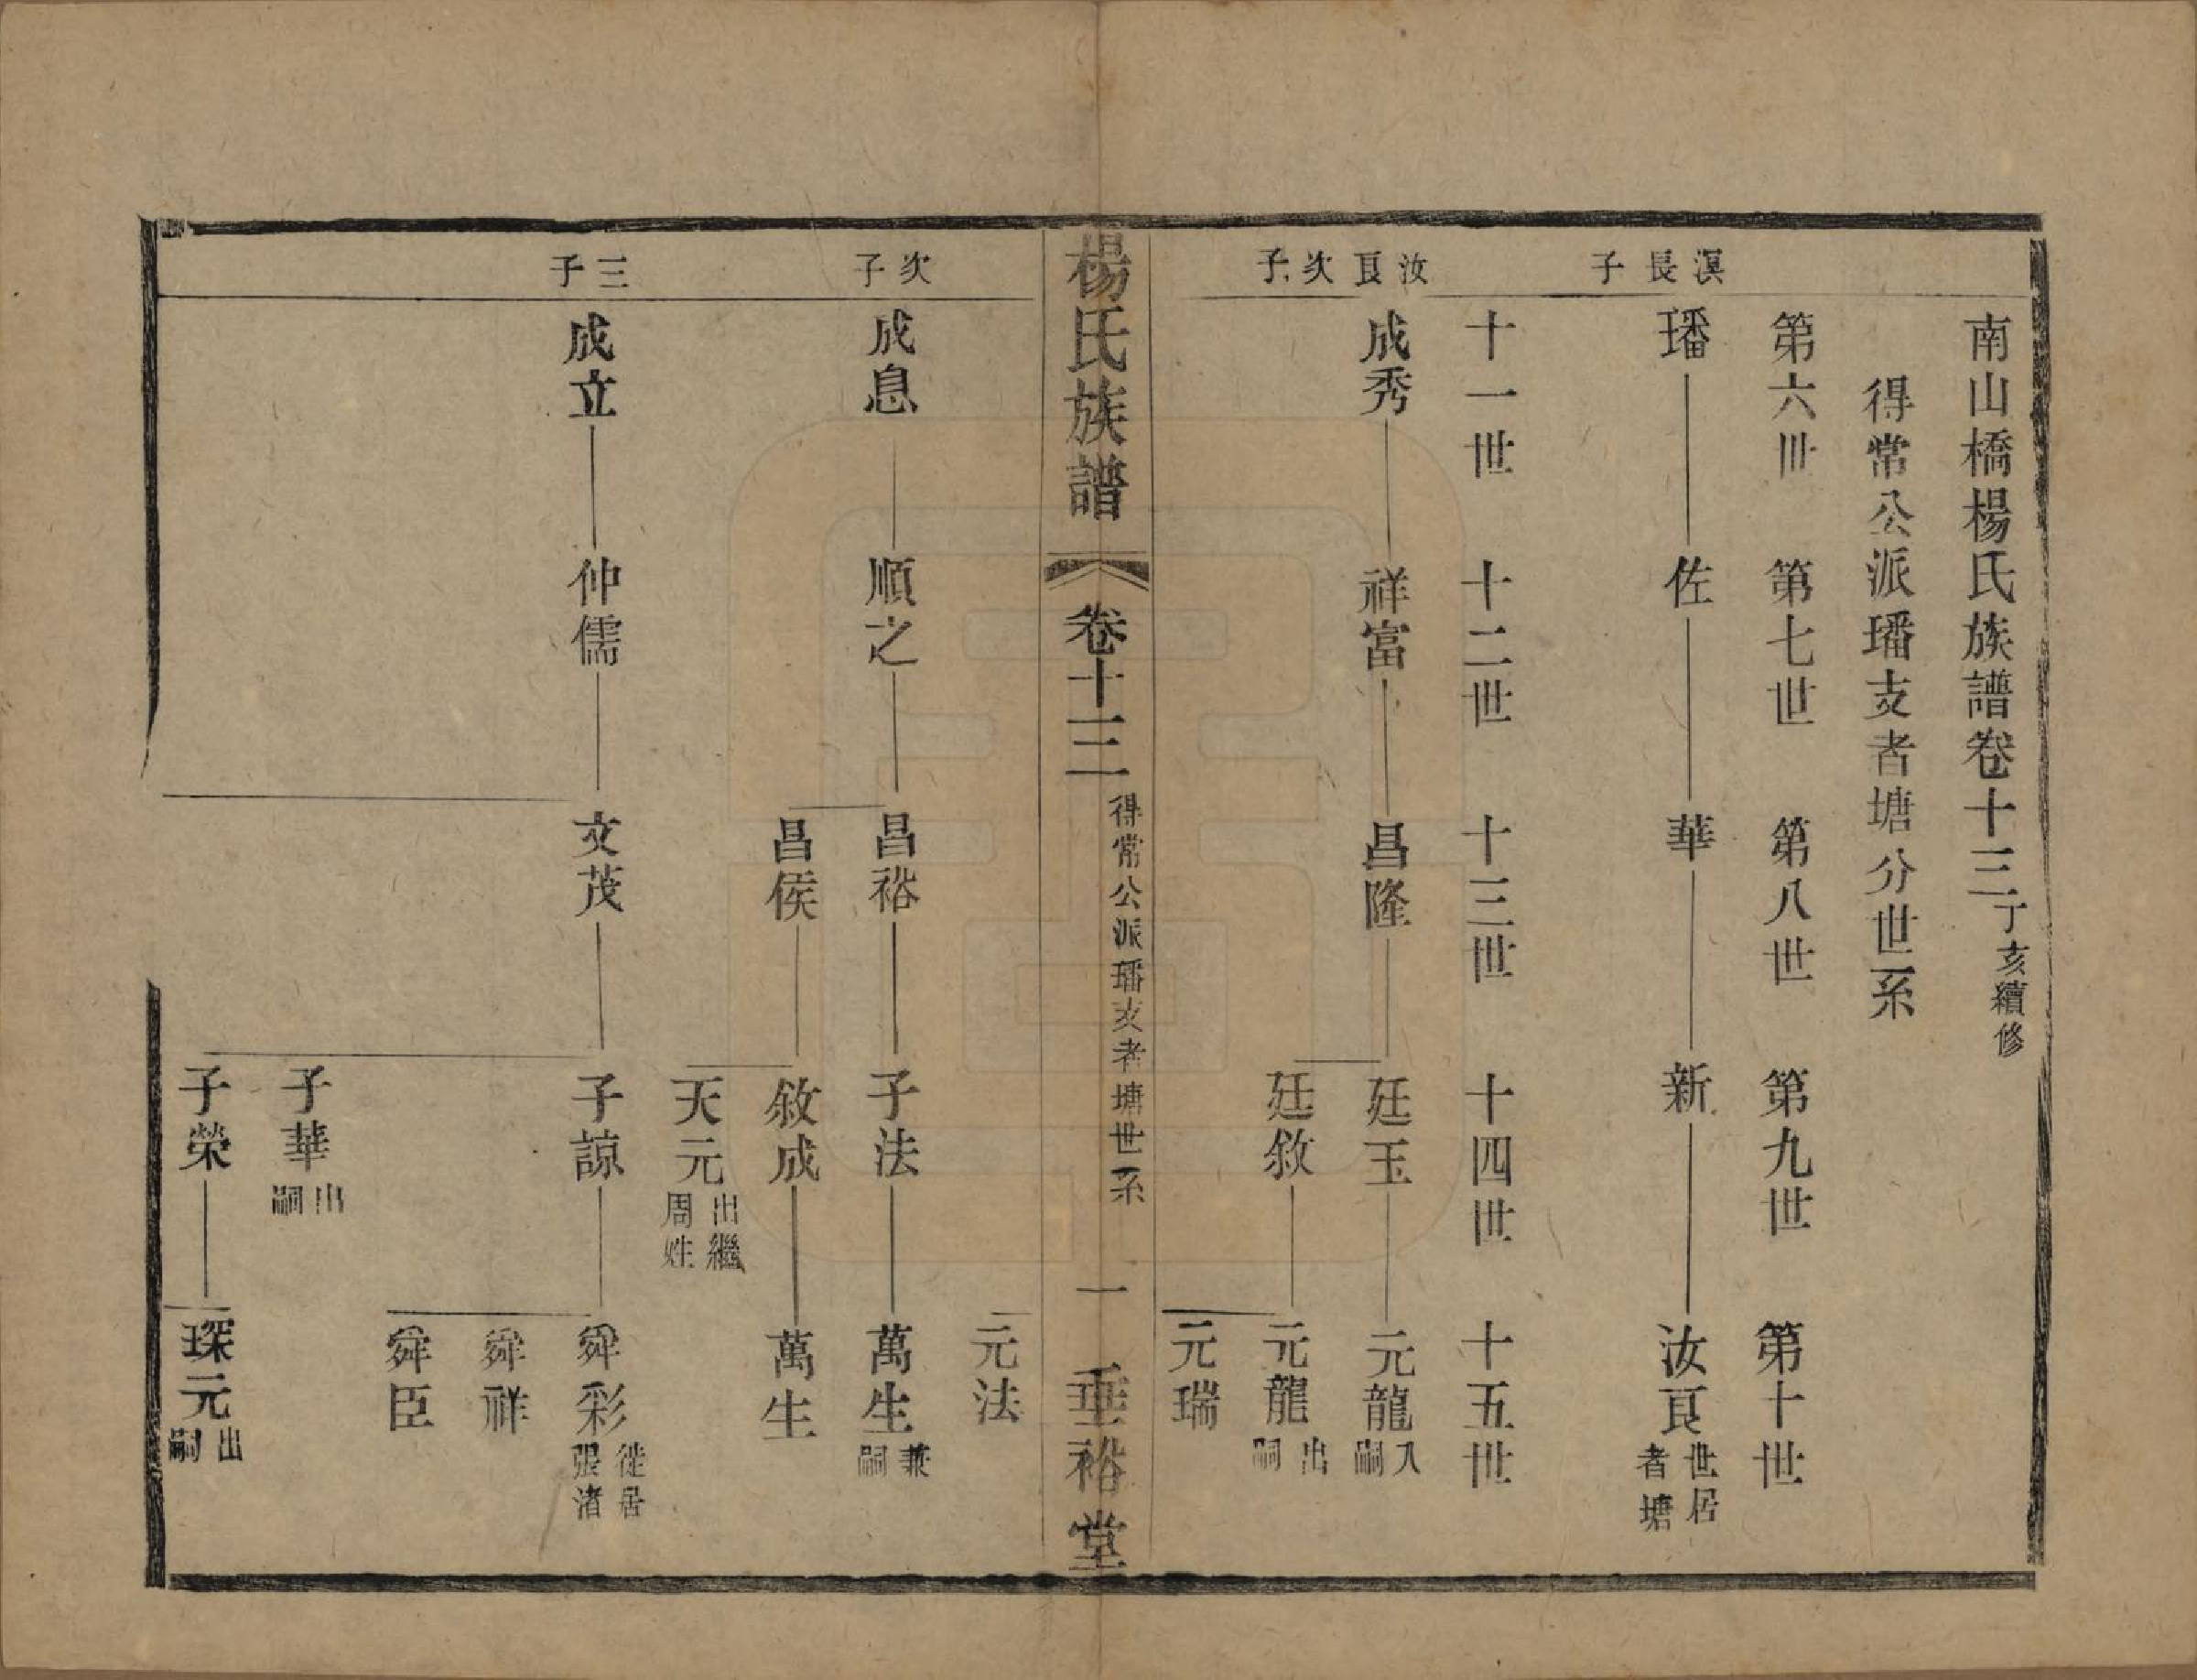 南山橋楊氏族譜卷十三丁亥續修
得常公派璠支者塘分世系
第六世 第七世 第八世 第九世 第十世
淏長子
璠 佐 華 新 汝良世居者塘
十一世 十二世 十三世 十四世 十五世
汝良次子
成秀 祥富 昌隆 廷玉 元龍入嗣
廷敘 元龍出嗣
元瑞
楊氏族譜 卷十三 得常公派璠支者塘世系 一 垂裕堂
元法
次子
成息 順之 昌裕 子法 萬生兼嗣
昌侯 敘成 萬生
天元出繼周姓
三子
成立 仲儒 文茂 子諒 舜彩徙居張渚
舜祥
舜臣
子華出嗣
子榮 琛元出嗣